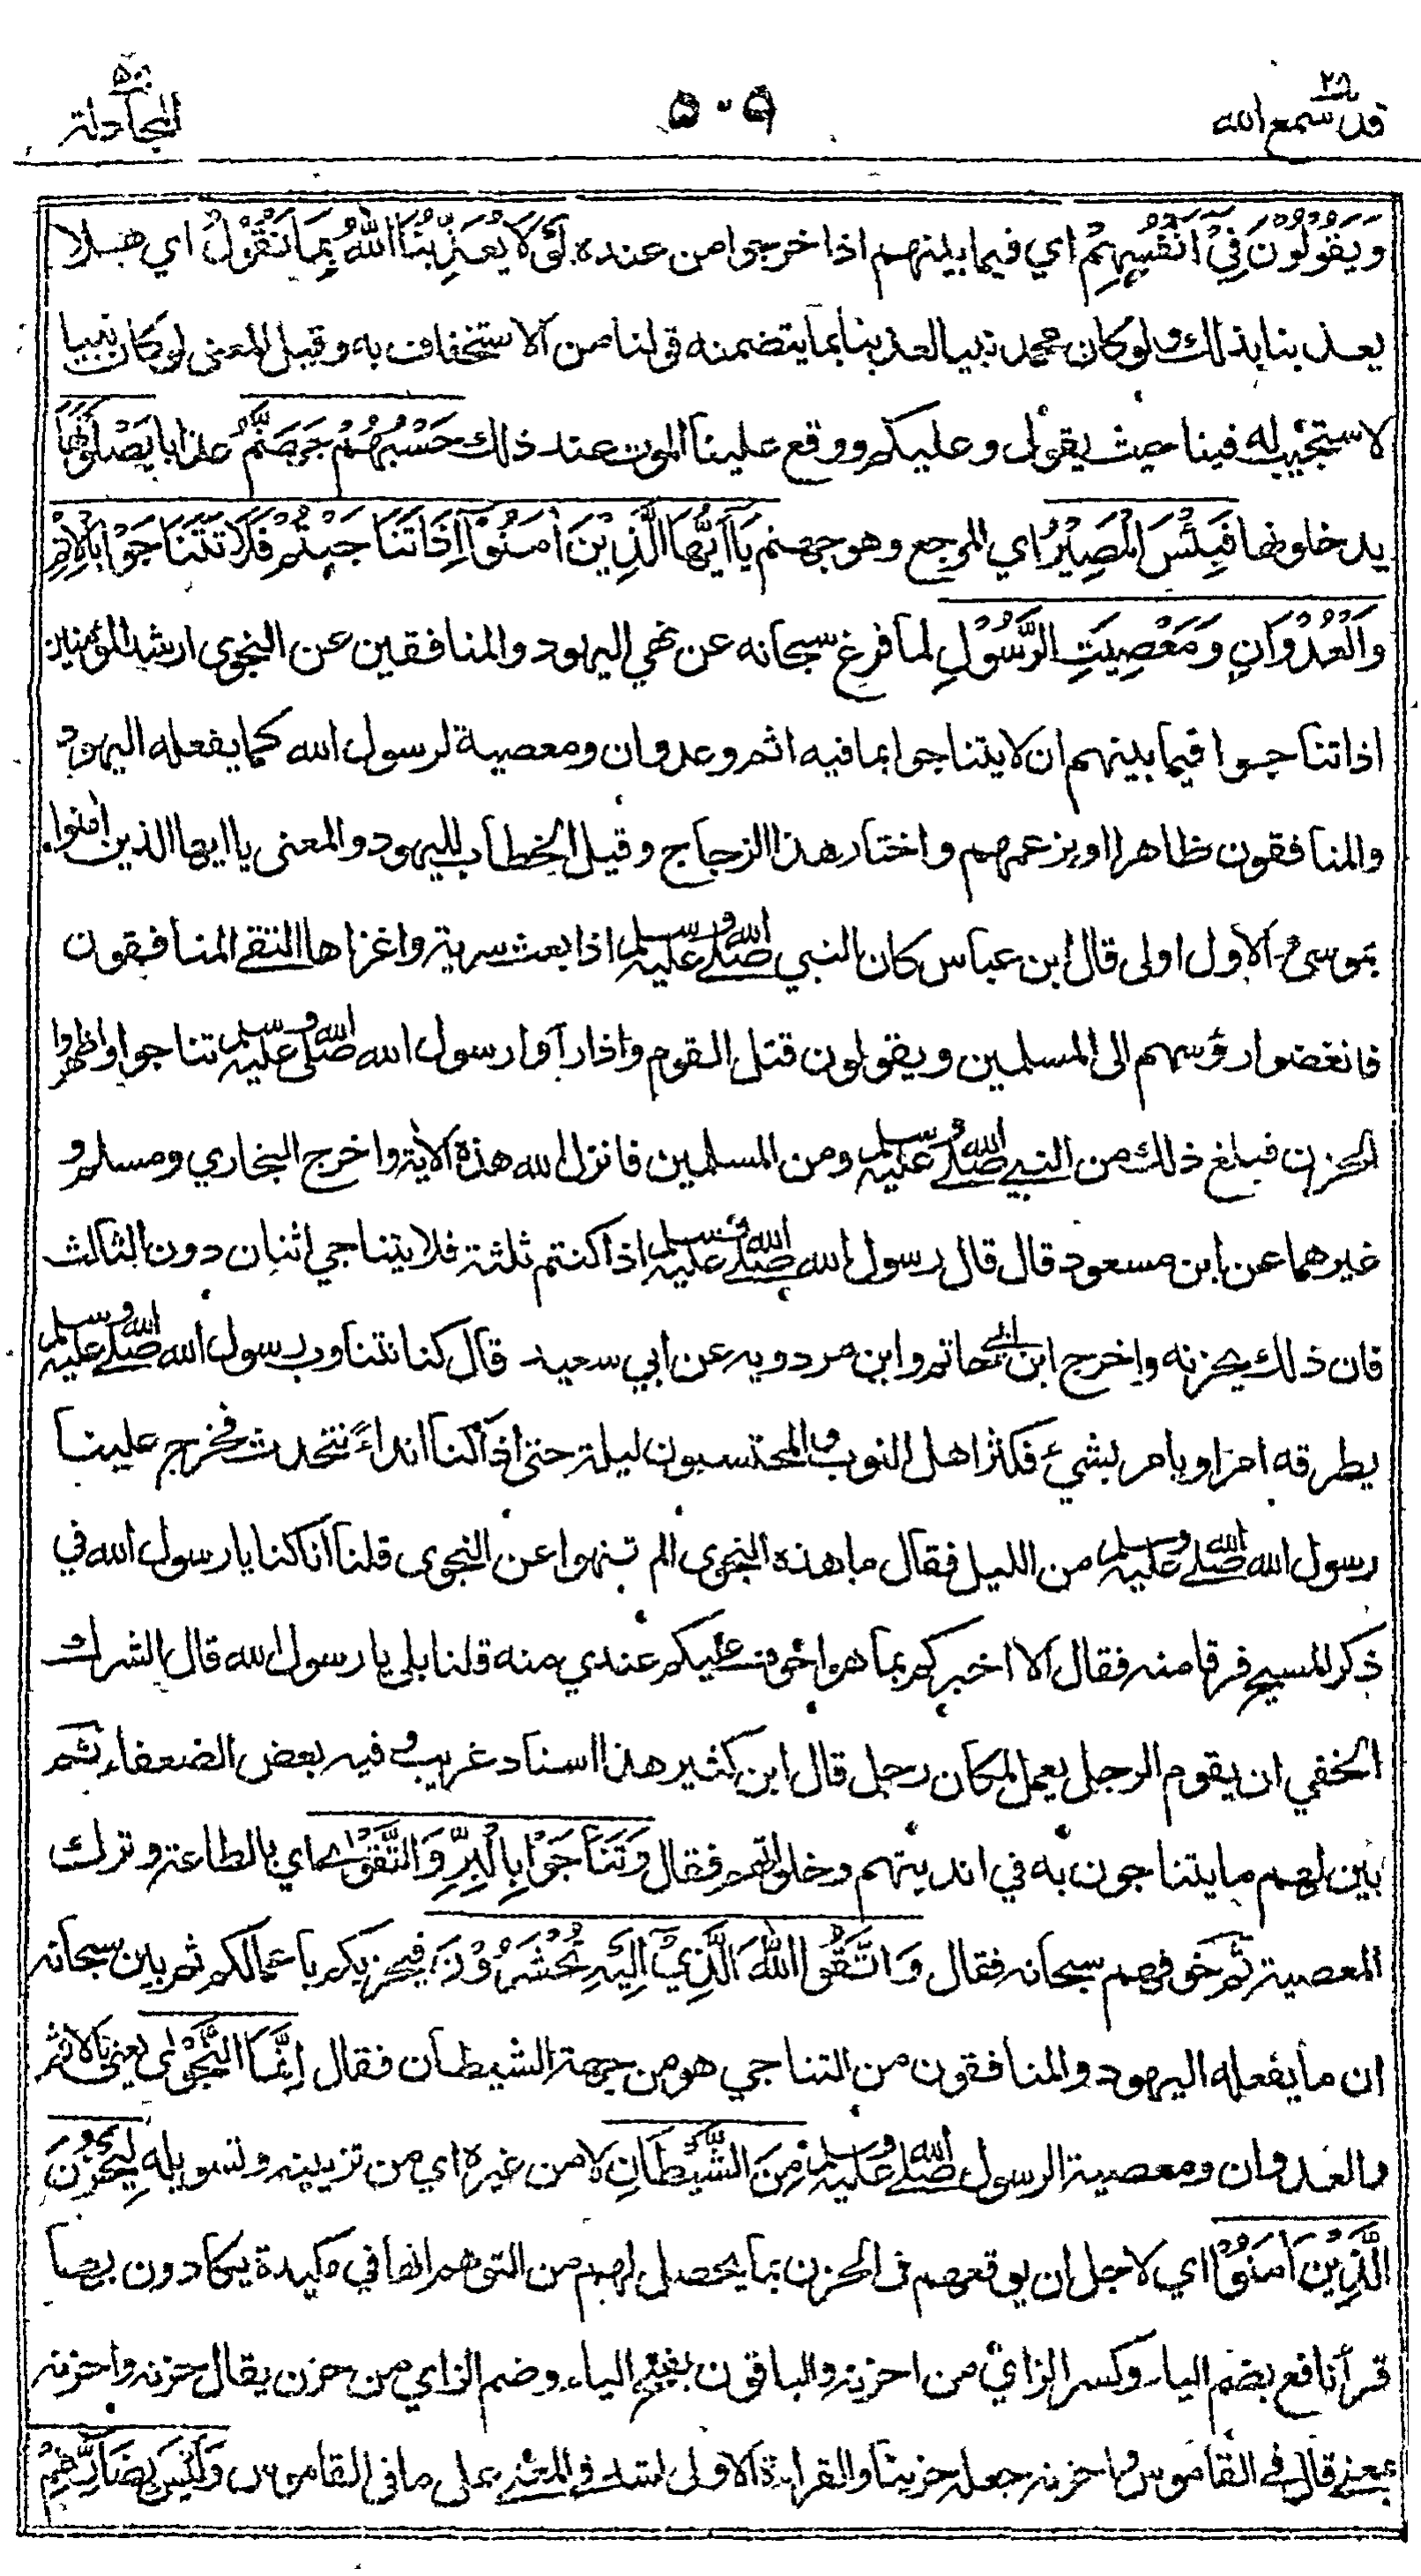 قد سمع الله ٢٨
٥٠٩
المجادلة ٥٨
وَيَقُوْلُوْنَ فِيْٓ اَنْفُسِهِمْ اي فيما بينهم اذا خرجوا من عنده لَوْلَا يُعَذِّبُنَا اللهُ بِمَا نَقُوْلُ اي هلا
يعذبنا بذلك ولو كان محمد نبيا لعذبنا بما يتضمنه قولنا من الاستخفاف به وقيل المعنى لو كان نبيا
لاستجيب له فينا حيث يقول وعليكم ووقع علينا الموت عند ذلك حَسْبُهُمْ جَهَنَّمُ عذابا يَصْلَوْنَهَا
يدخلونها فَبِئْسَ الْمَصِيْرُ اي المرجع وهو جهنم يَآ اَيُّهَا الَّذِيْنَ اٰمَنُوْٓا اِذَا تَنَاجَيْتُمْ فَلَا تَتَنَاجَوْا بِالْاِثْمِ
وَالْعُدْوَانِ وَمَعْصِيَتِ الرَّسُوْلِ لما فرغ سبحانه عن نهي اليهود والمنافقين عن النجوى ارشد المؤمنين
اذا تناجوا فيما بينهم ان لا يتناجوا بما فيه اثم وعدوان ومعصية لرسول الله كما يفعله اليهود
والمنافقون ظاهرا او بزعمهم واختار هذا الزجاج وقيل الخطاب لليهود والمعنى يا ايها الذين اٰمنوا
بموسى والاول اولى قال ابن عباس كان النبي صلى الله عليه وسلم اذا بعث سرية واغزاها التقى المنافقون
فانغضوا رؤسهم الى المسلمين ويقولون قتل القوم واذا رآوا رسول الله صلى الله عليه وسلم تناجوا واظهروا
الحزن فبلغ ذلك من النبي صلى الله عليه وسلم ومن المسلمين فانزل الله هذه الاية واخرج البخاري ومسلم و
غيرهما عن ابن مسعود قال قال رسول الله صلى الله عليه وسلم اذا كنتم ثلثة فلا يتناجي اثنان دون الثالث
فان ذلك يحزنه واخرج ابن ابي حاتم وابن مردويه عن ابي سعيد قال كنا نتناوب رسول الله صلى الله عليه وسلم
يطرقه امر او يامر بشيء فكثر اهل النوب والمحتسبون ليلة حتى اذا كنا انداء نتحدث فخرج علينا
رسول الله صلى الله عليه وسلم من الليل فقال ما هذه النجوى الم تنهوا عن النجوى قلنا انا كنا يا رسول الله في
ذكر المسيح فرقا منه فقال الا اخبركم بما هو اخوف عليكم عندي منه قلنا بلى يا رسول الله قال الشرك
الخفي ان يقوم الرجل يعمل لمكان رجل قال ابن كثير هذا اسناد غريب وفيه بعض الضعفاء ثم
بين لهم ما يتناجون به في انديتهم وخلواتهم فقال وَتَنَاجَوْا بِالْبِرِّ وَالتَّقْوٰى اي بالطاعة وترك
المعصية ثم خوفهم سبحانه فقال وَاتَّقُوا اللهَ الَّذِيْٓ اِلَيْهِ تُحْشَرُوْنَ فيجزيكم باعمالكم ثم بين سبحانه
ان ما يفعله اليهود والمنافقون من التناجي هو من جهة الشيطان فقال اِنَّمَا النَّجْوٰى يعني بالاثم
والعدوان ومعصية الرسول صلى الله عليه وسلم مِنَ الشَّيْطَانِ لا من غيره اي من تزيينه وتسويله لِيَحْزُنَ
الَّذِيْنَ اٰمَنُوْا اي لاجل ان يوقعهم في الحزن بما يحصل لهم من التوهم انها في مكيدة يكادون بها
قرأ نافع بضم الياء وكسر الزاي من احزنه والباقون بفتح الياء وضم الزاي من حزن يقال حزنه واحزنه
بمعنى قال في القاموس واحزنه جعله حزينا والقراءة الاولى اشد في المعنى على ما في القاموس وَلَيْسَ بِضَارِّهِمْ